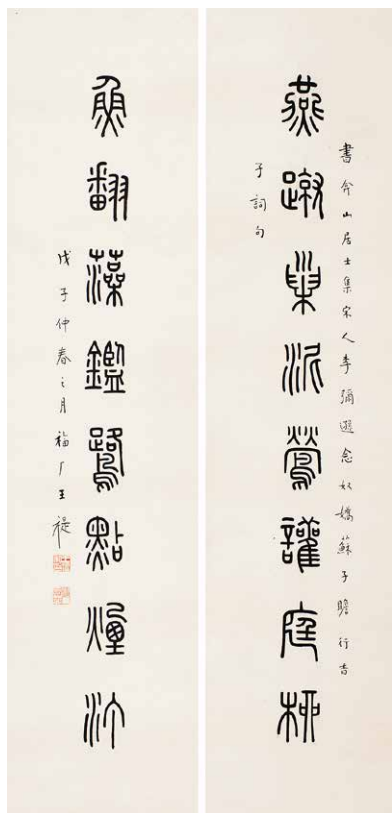 燕蹴巢泥鶯讙庭柳
書弇山居士集宋人李彌遜念奴嬌蘇子瞻行香
子詞句
魚翻藻鑑鷺點煙汀
戊子仲春之月福厂王禔